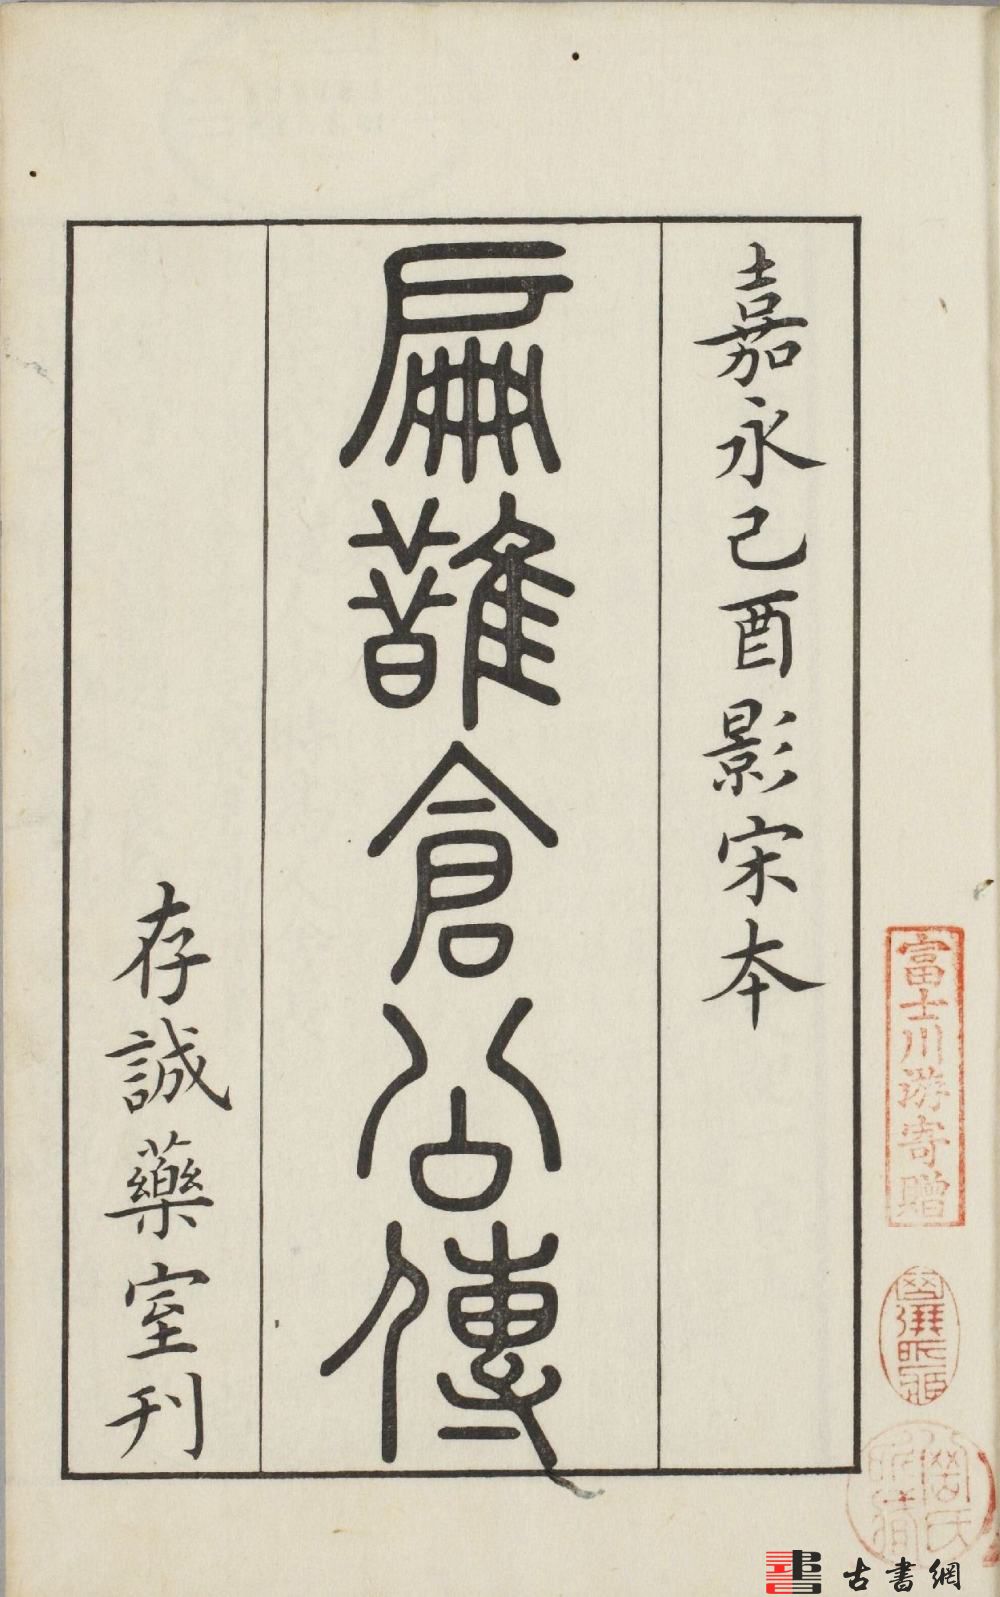 嘉永己酉影宋本
扁鵲倉公傳
存誠藥室刊
富士川游寄贈
古書網